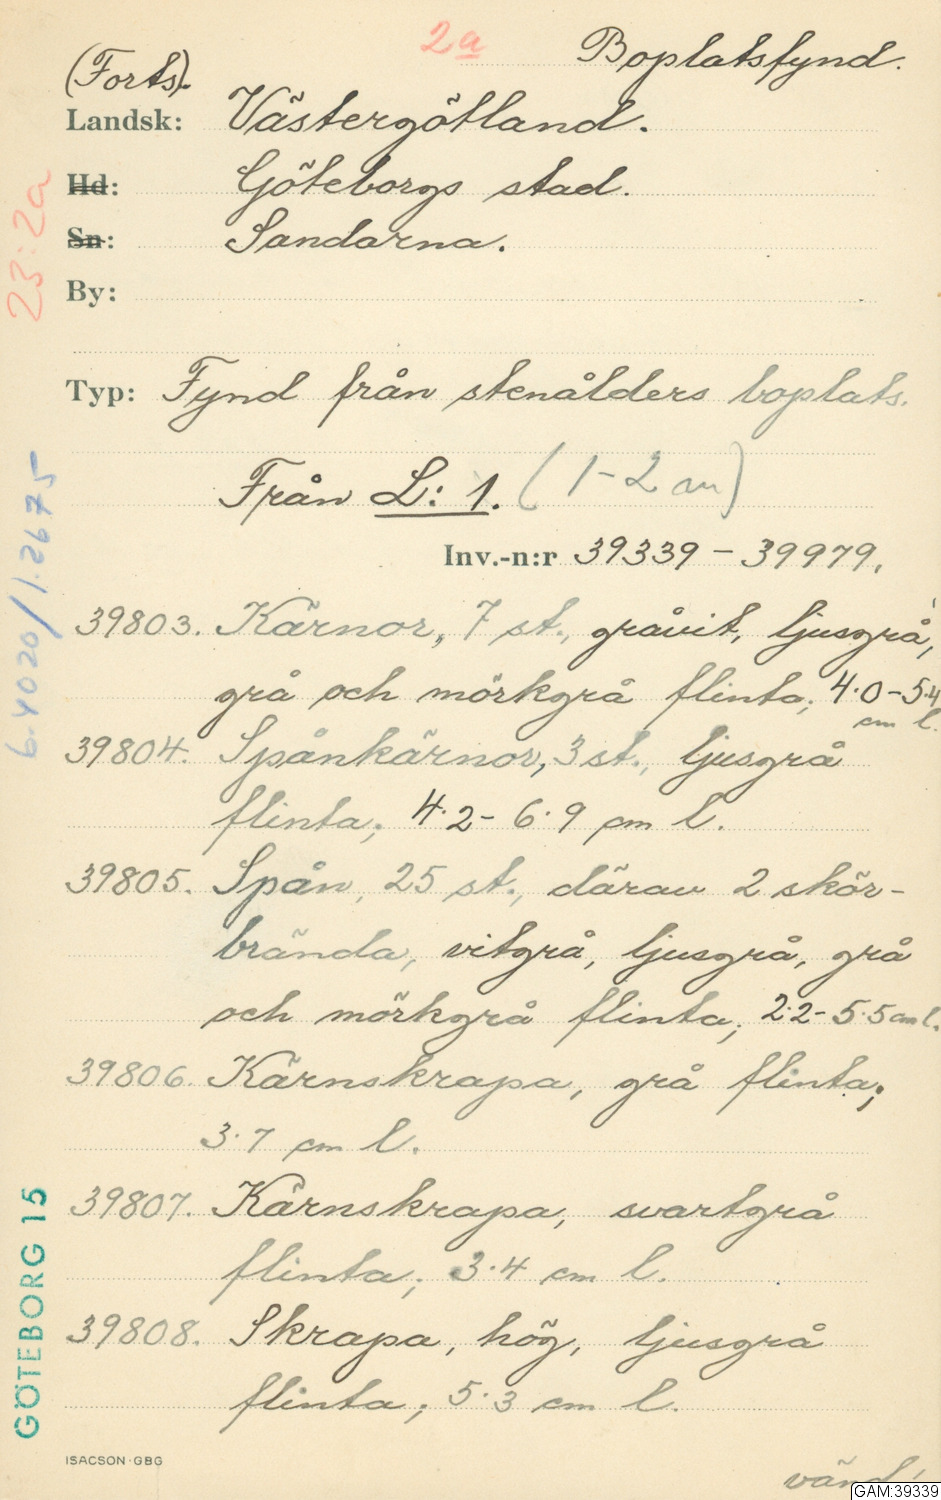 2a Boplatsfynd.
(Forts).
Landsk: Västergötland.
Hd: Göteborgs stad.
Sn: Sandarna.
By:
Typ: Fynd från stenålders boplats.
Från L: 1. (1-2 m)
Inv.-n:r 39339 - 39979.
39803. Kärnor, 7 st., gråvit, ljusgrå,
grå och mörkgrå flinta; 4.0-5.4
cm l.
39804. Spånkärnor, 3 st., ljusgrå
flinta; 4.2- 6.9 cm l.
39805. Spån, 25 st., därav 2 skör-
brända, vitgrå, ljusgrå, grå
och mörkgrå flinta; 2.2- 5.5 cm l.
39806. Kärnskrapa, grå flinta;
3.7 cm l.
39807. Kärnskrapa, svartgrå
flinta; 3.4 cm l.
39808. Skrapa, hög, ljusgrå
flinta; 5.3 cm l.
vänd!
ISACSON·GBG
23:2a
6.4020/1.2675
GÖTEBORG 15
GAM:39339